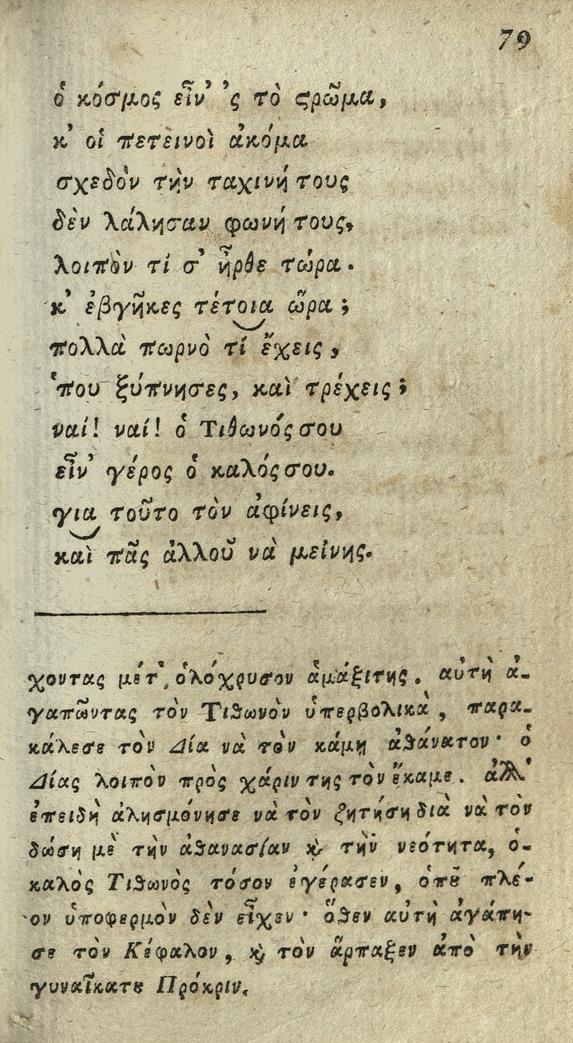 79
ὁ κόσμος εἶν' 'ς τὸ ϛρῶμα,
κ' οἱ πετεινοὶ ἀκόμα
σχεδὸν τὴν ταχινή τους
δὲν λάλησαν φωνή τους,
λοιπὸν τί σ' ἦρθε τώρα.
κ' ἐβγῆκες τέτοια ὥρα;
πολλὰ πωρνὸ τί ἔχεις,
'που ξύπνησες, καὶ τρέχεις;
ναί! ναί! ὁ Τιθωνός σου
εἶν' γέρος ὁ καλός σου.
για τοῦτο τὸν ἀφίνεις,
καὶ πᾶς ἀλλοῦ νὰ μείνῃς.
χοντας μέτ' ὁλόχρυσον ἁμάξιτης. αὐτὴ ἀ-
γαπῶντας τὸν Τιθωνὸν ὑπερβολικὰ, παρα-
κάλεσε τὸν Δία νὰ τὸν κάμῃ ἀθάνατον· ὁ
Δίας λοιπὸν πρὸς χάριν της τὸν ἔκαμε. ἀλλ'
ἐπειδὴ ἀλησμόνησε νὰ τὸν ζητήσῃ διὰ νὰ τὸν
δώσῃ μὲ τὴν ἀθανασίαν ϗ τὴν νεότητα, ὁ-
καλὸς Τιθωνὸς τόσον ἐγέρασεν, ὁπȣ πλέ-
ον ὑποφερμὸν δὲν εἶχεν· ὅθεν αὐτὴ ἀγάπη-
σε τὸν Κέφαλον, ϗ τὸν ἅρπαξεν ἀπὸ τὴν
γυναῖκατȣ Πρόκριν.